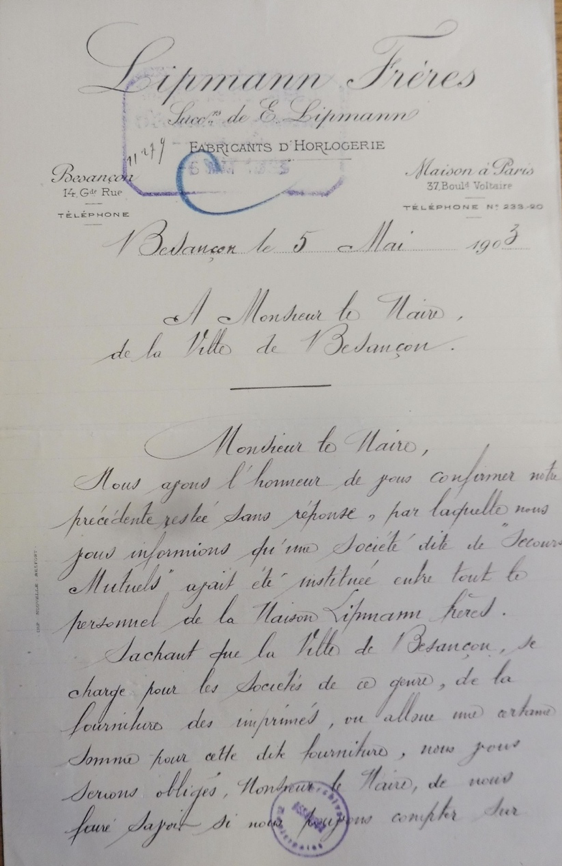 Lipmann Frères
Succrs de E. Lipmann
FABRICANTS D'HORLOGERIE
Besançon
14, Gde Rue
TÉLÉPHONE
Maison à Paris
37, Bould Voltaire
TÉLÉPHONE No 233-20
Besançon le 5 Mai 1903
A Monsieur le Maire,
de la Ville de Besançon.
Monsieur le Maire,
Nous avons l'honneur de vous confirmer notre
précédente restée sans réponse, par laquelle nous
vous informions qu'une Société dite de "Secours
Mutuels" avait été instituée entre tout le
personnel de la Maison Lipmann frères.
Sachant que la Ville de Besançon, se
charge pour les Sociétés de ce genre, de la
fourniture des imprimés, ou alloue une certaine
somme pour cette dite fourniture, nous vous
serions obligés, Monsieur le Maire, de nous
faire savoir si nous pouvons compter sur